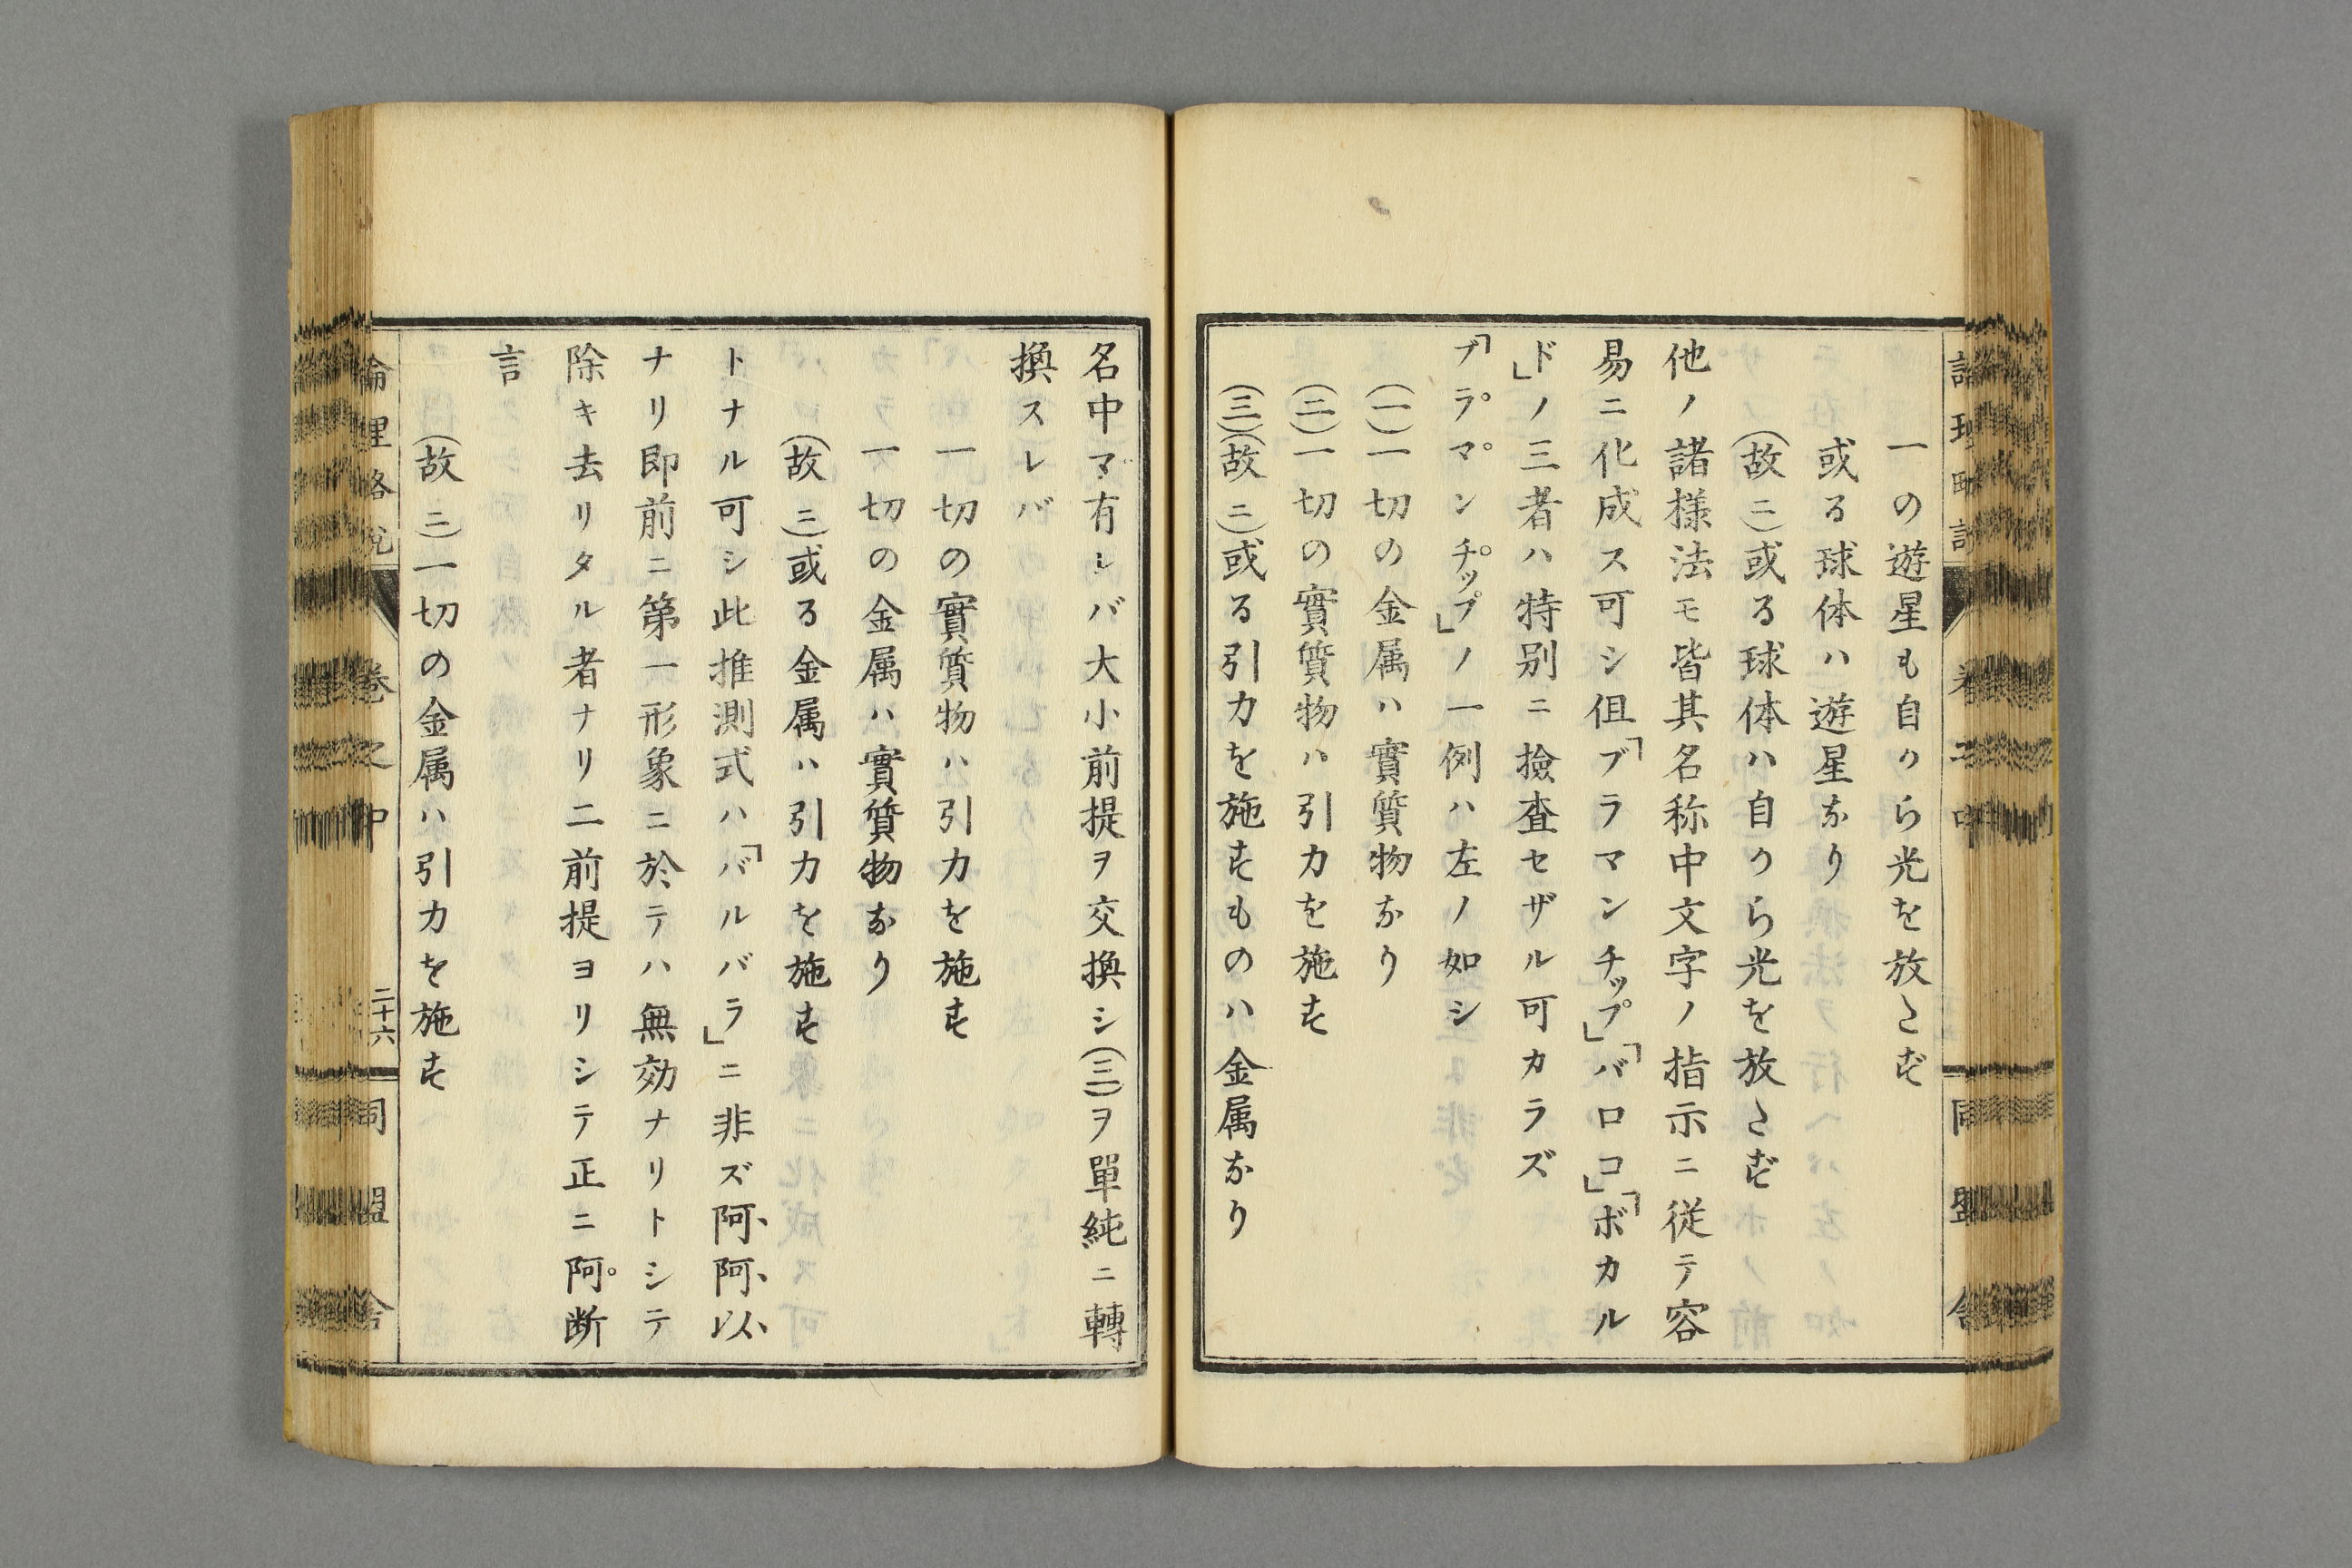 一の遊星も自から光を放たず
或る球体ハ遊星なり
(故ニ)或る球体ハ自から光を放たず
他ノ諸様法モ皆其名称中文字ノ指示ニ従テ容
易ニ化成ス可シ但「ブラマンチップ」「バロコ」「ボカル
ド」ノ三者ハ特別ニ撿査セザル可カラズ
「ブラマンチップ」ノ一例ハ左ノ如シ
(一)一切の金属ハ實質物なり
(二)一切の實質物ハ引力を施す
(三)(故ニ)或る引力を施すものハ金属なり
名中マ有レバ大小前提ヲ交換シ(三)ヲ單純ニ轉
換スレバ
一切の實質物ハ引力を施す
一切の金属ハ實質物なり
(故ニ)或る金属ハ引力を施す
トナル可シ此推測式ハ「バルバラ」ニ非ズ阿阿以
ナリ即前ニ第一形象ニ於テハ無効ナリトシテ
除キ去リタル者ナリ二前提ヨリシテ正ニ阿断
言
(故ニ)一切の金属ハ引力を施す
論理略説
巻之中
二十六
同盟舎